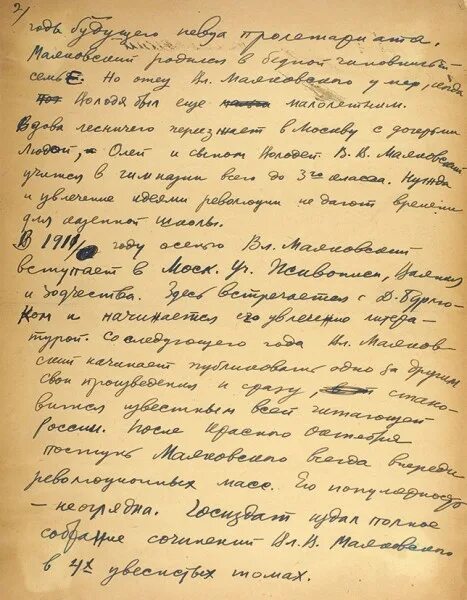 2/
годы будущего певца пролетариата.
Маяковский родился в бедной чиновничьей
семье. Но отец Вл. Маяковского умер, когда
Володя был еще малолетним.
Вдова лесничего переезжает в Москву с дочерьми
Людой, Олей и сыном Володей. В. В. Маяковский
учится в гимназии всего до 3го класса. Нужда
и увлечение идеями революции не дают времени
для казенной школы.
В 1911 году осенью Вл. Маяковский
вступает в Моск. Уч. Живописи, Ваяния
и Зодчества. Здесь встречается с Д. Бурлю-
ком и начинается его увлечение литера-
турой. Со следующего года Вл. Маяков
ский начинает публиковать одно за другим
свои произведения и сразу, стано-
вится известным всей читающей
России. После Красного Октября
поступь Маяковского всегда впереди
революционных масс. Его популярность
– неоглядна. Госиздат издал полное
собрание сочинений Вл. В. Маяковского
в 4х увесистых томах.